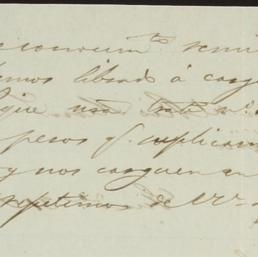 conocim.to
hemos librado á carg
que una
pesos q. suplicam
y nos carguen en
repetimos de VV.